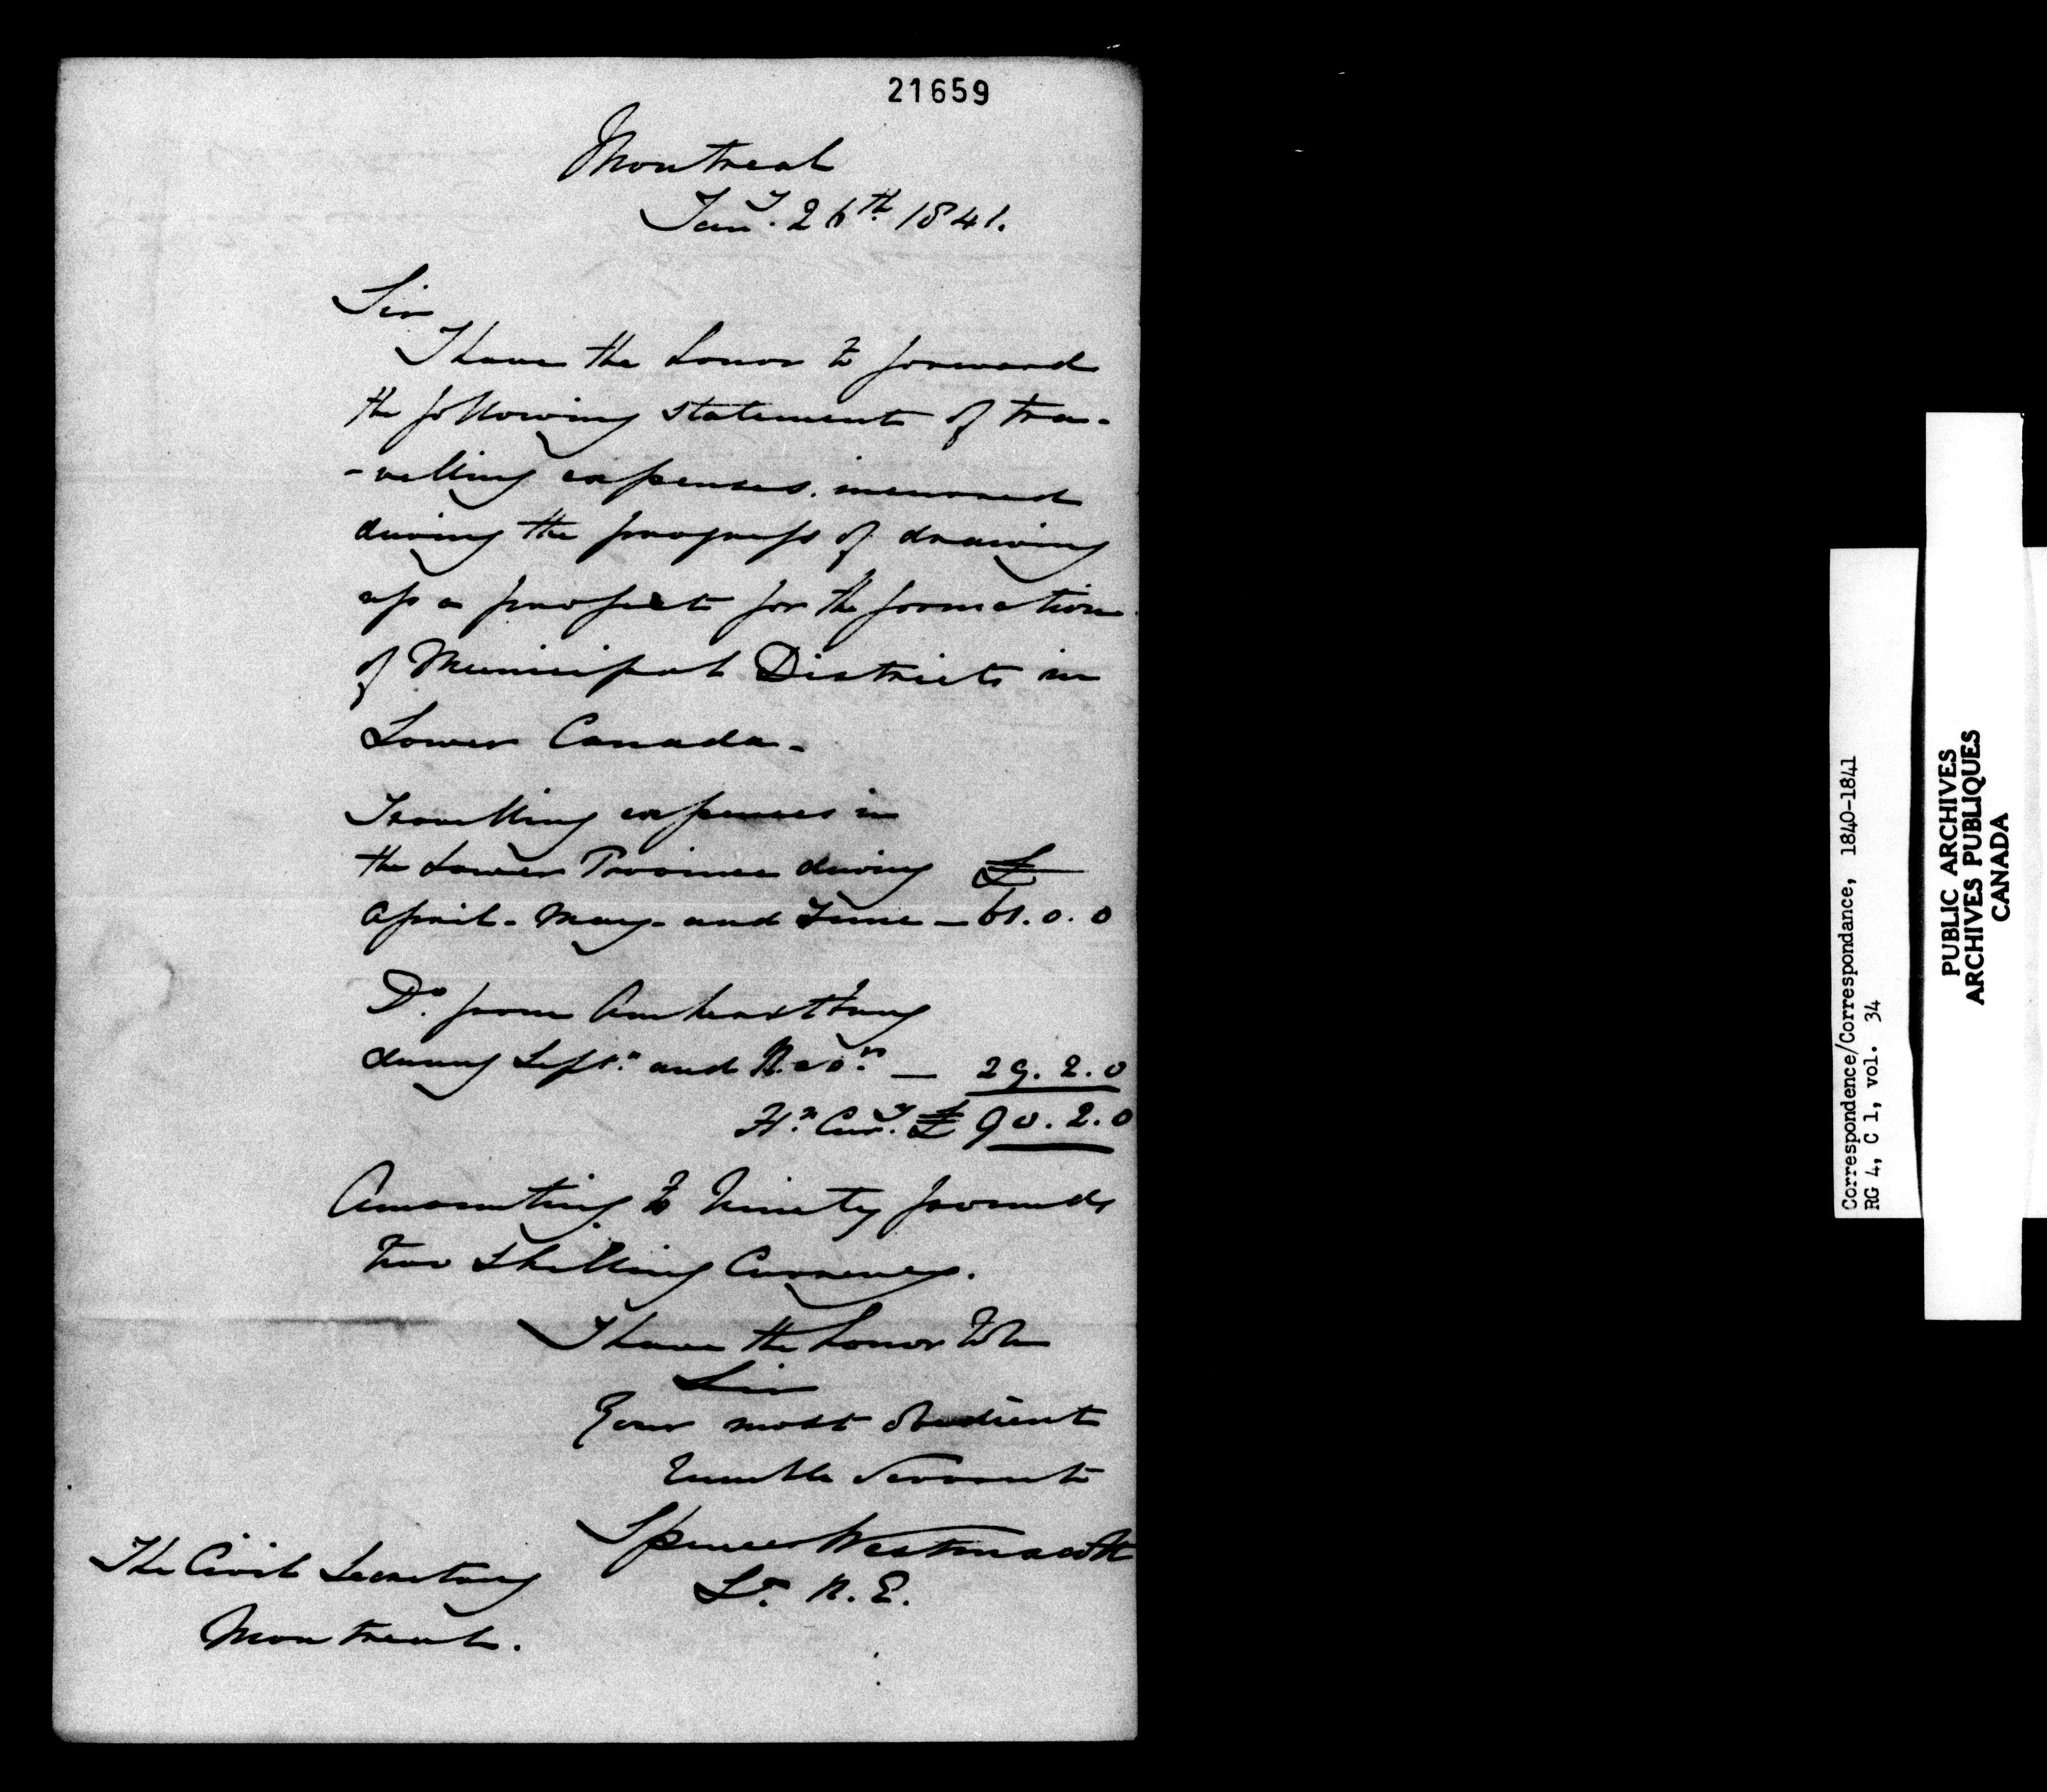 21659
Montreal
Jany. 26th 1841.
Sir
I have the honor to forward
the following statement of tra-
-velling expenses incurred
during the progress of drawing
up a project for the formation
of Municipal Districts in
Lower Canada.
Travelling expenses in
the Lower Province during £
April - May - and June - 61.0.0
Do. from Amherstburg
during Septr. and Novr. - 29.2.0
Hx. Cury. £ 90.2.0
Amounting to Ninety pounds
two Shilling Currency.
I have the honor to be
Sir
Your most obedient
humble servant
Spencer Westmacott
Lt. R.E.
The Civil Secretary
Montreal.
Correspondence/Correspondance, 1840-1841
RG 4, C 1, vol. 34
PUBLIC ARCHIVES
ARCHIVES PUBLIQUES
CANADA